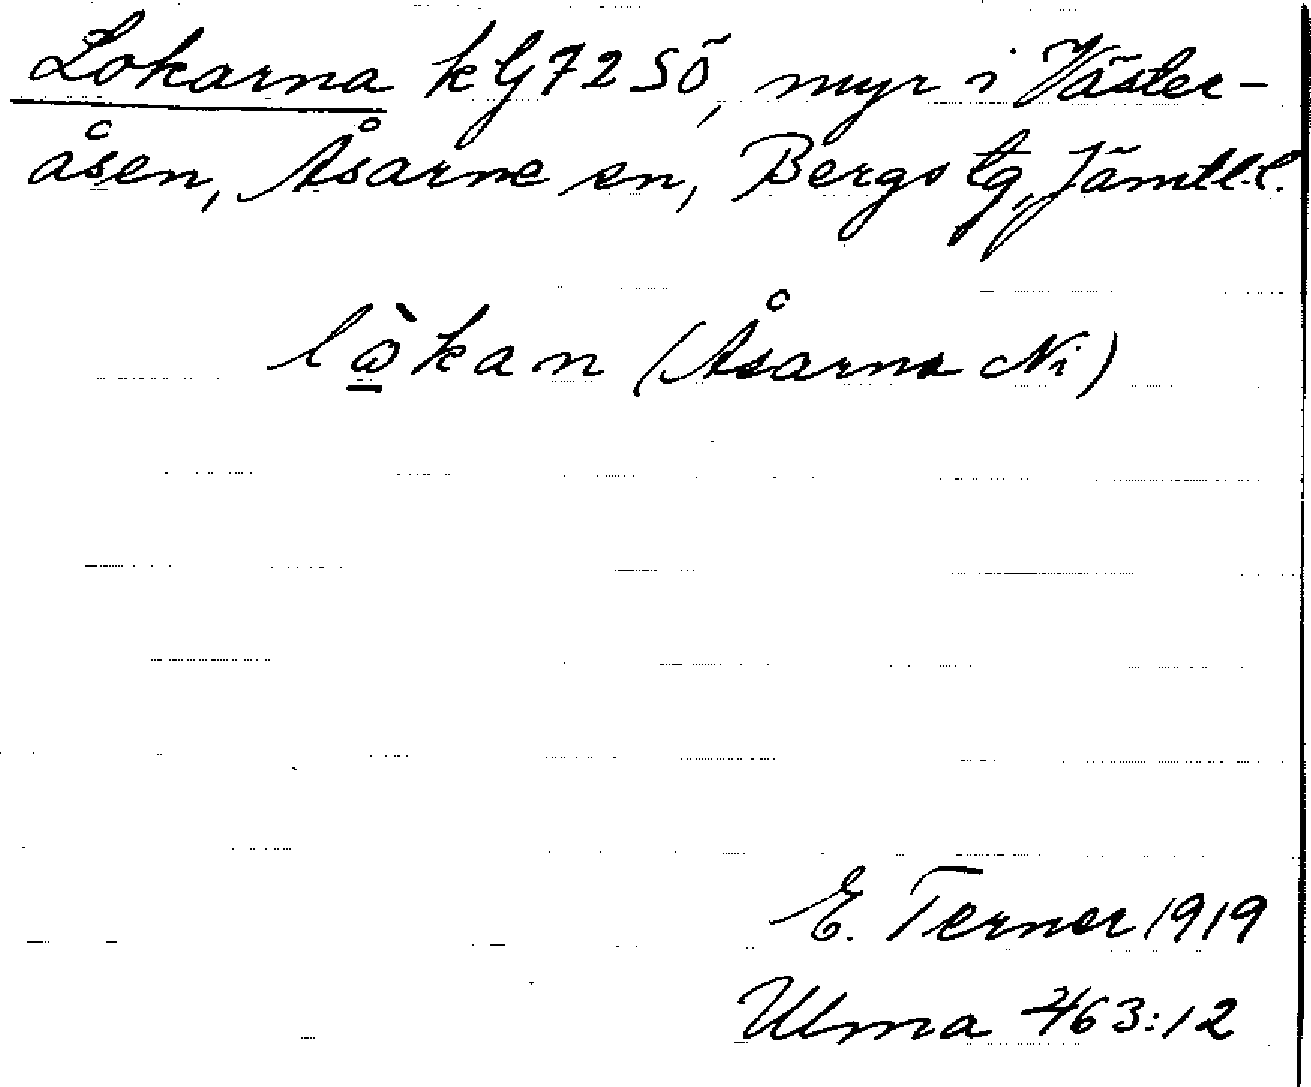 Lokarna kG72SÖ, myr i Väster-
åsen, Åsarne sn, Bergs tg, Jämtl.l.
lòkan (Åsarna Ni)
E. Terner 1919
Ulma 463:12